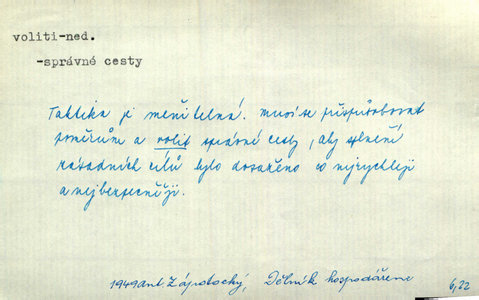 voliti-ned.
-správné cesty
Taktika je měnitelná. musí se přizpůsobovat
poměrům a volit správné cesty, aby splnění
zásadních cílů bylo dosaženo co nejrychleji
a nejbezpečněji.
1949 Ant. Zápotocký, Dělník hospodářem
6,22